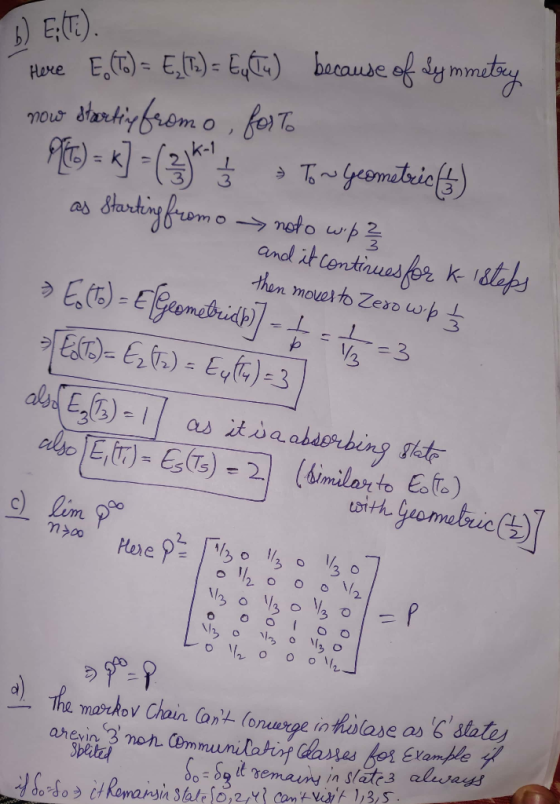 b) E_i(T_i).
Here E_0(T_0) = E_2(T_2) = E_4(T_4) because of Symmetry
now starting from 0, for T_0
P[T_0 = K] = (2/3)^{K-1} 1/3 ⇒ T_0 ~ Geometric(1/3)
as Starting from 0 → not 0 w.p 2/3
and it continues for K-1 steps
then moves to Zero w.p 1/3
⇒ E_0(T_0) = E[Geometric(p)] = 1/p = 1/(1/3) = 3
⇒ E_0(T_0) = E_2(T_2) = E_4(T_4) = 3
also E_3(T_3) = 1 as it is a absorbing state
also E_1(T_1) = E_5(T_5) = 2 (Similar to E_0(T_0)
with Geometric(1/2)]
c) lim n→∞ P^∞
Here P^2 = [1/3 0 1/3 0 1/3 0
0 1/2 0 0 0 1/2
1/3 0 1/3 0 1/3 0
0 0 0 1 0 0
1/3 0 1/3 0 1/3 0
0 1/2 0 0 0 1/2] = P
⇒ P^∞ = P
d) The markov Chain Can't Converge in this case as '6' states
are splited in '3' non Communicating classes for Example if
δ_0 = δ_3 it remains in state 3 always
if δ_0 = δ_0 ⇒ it Remains in State {0,2,4} can't visit 1,3,5.